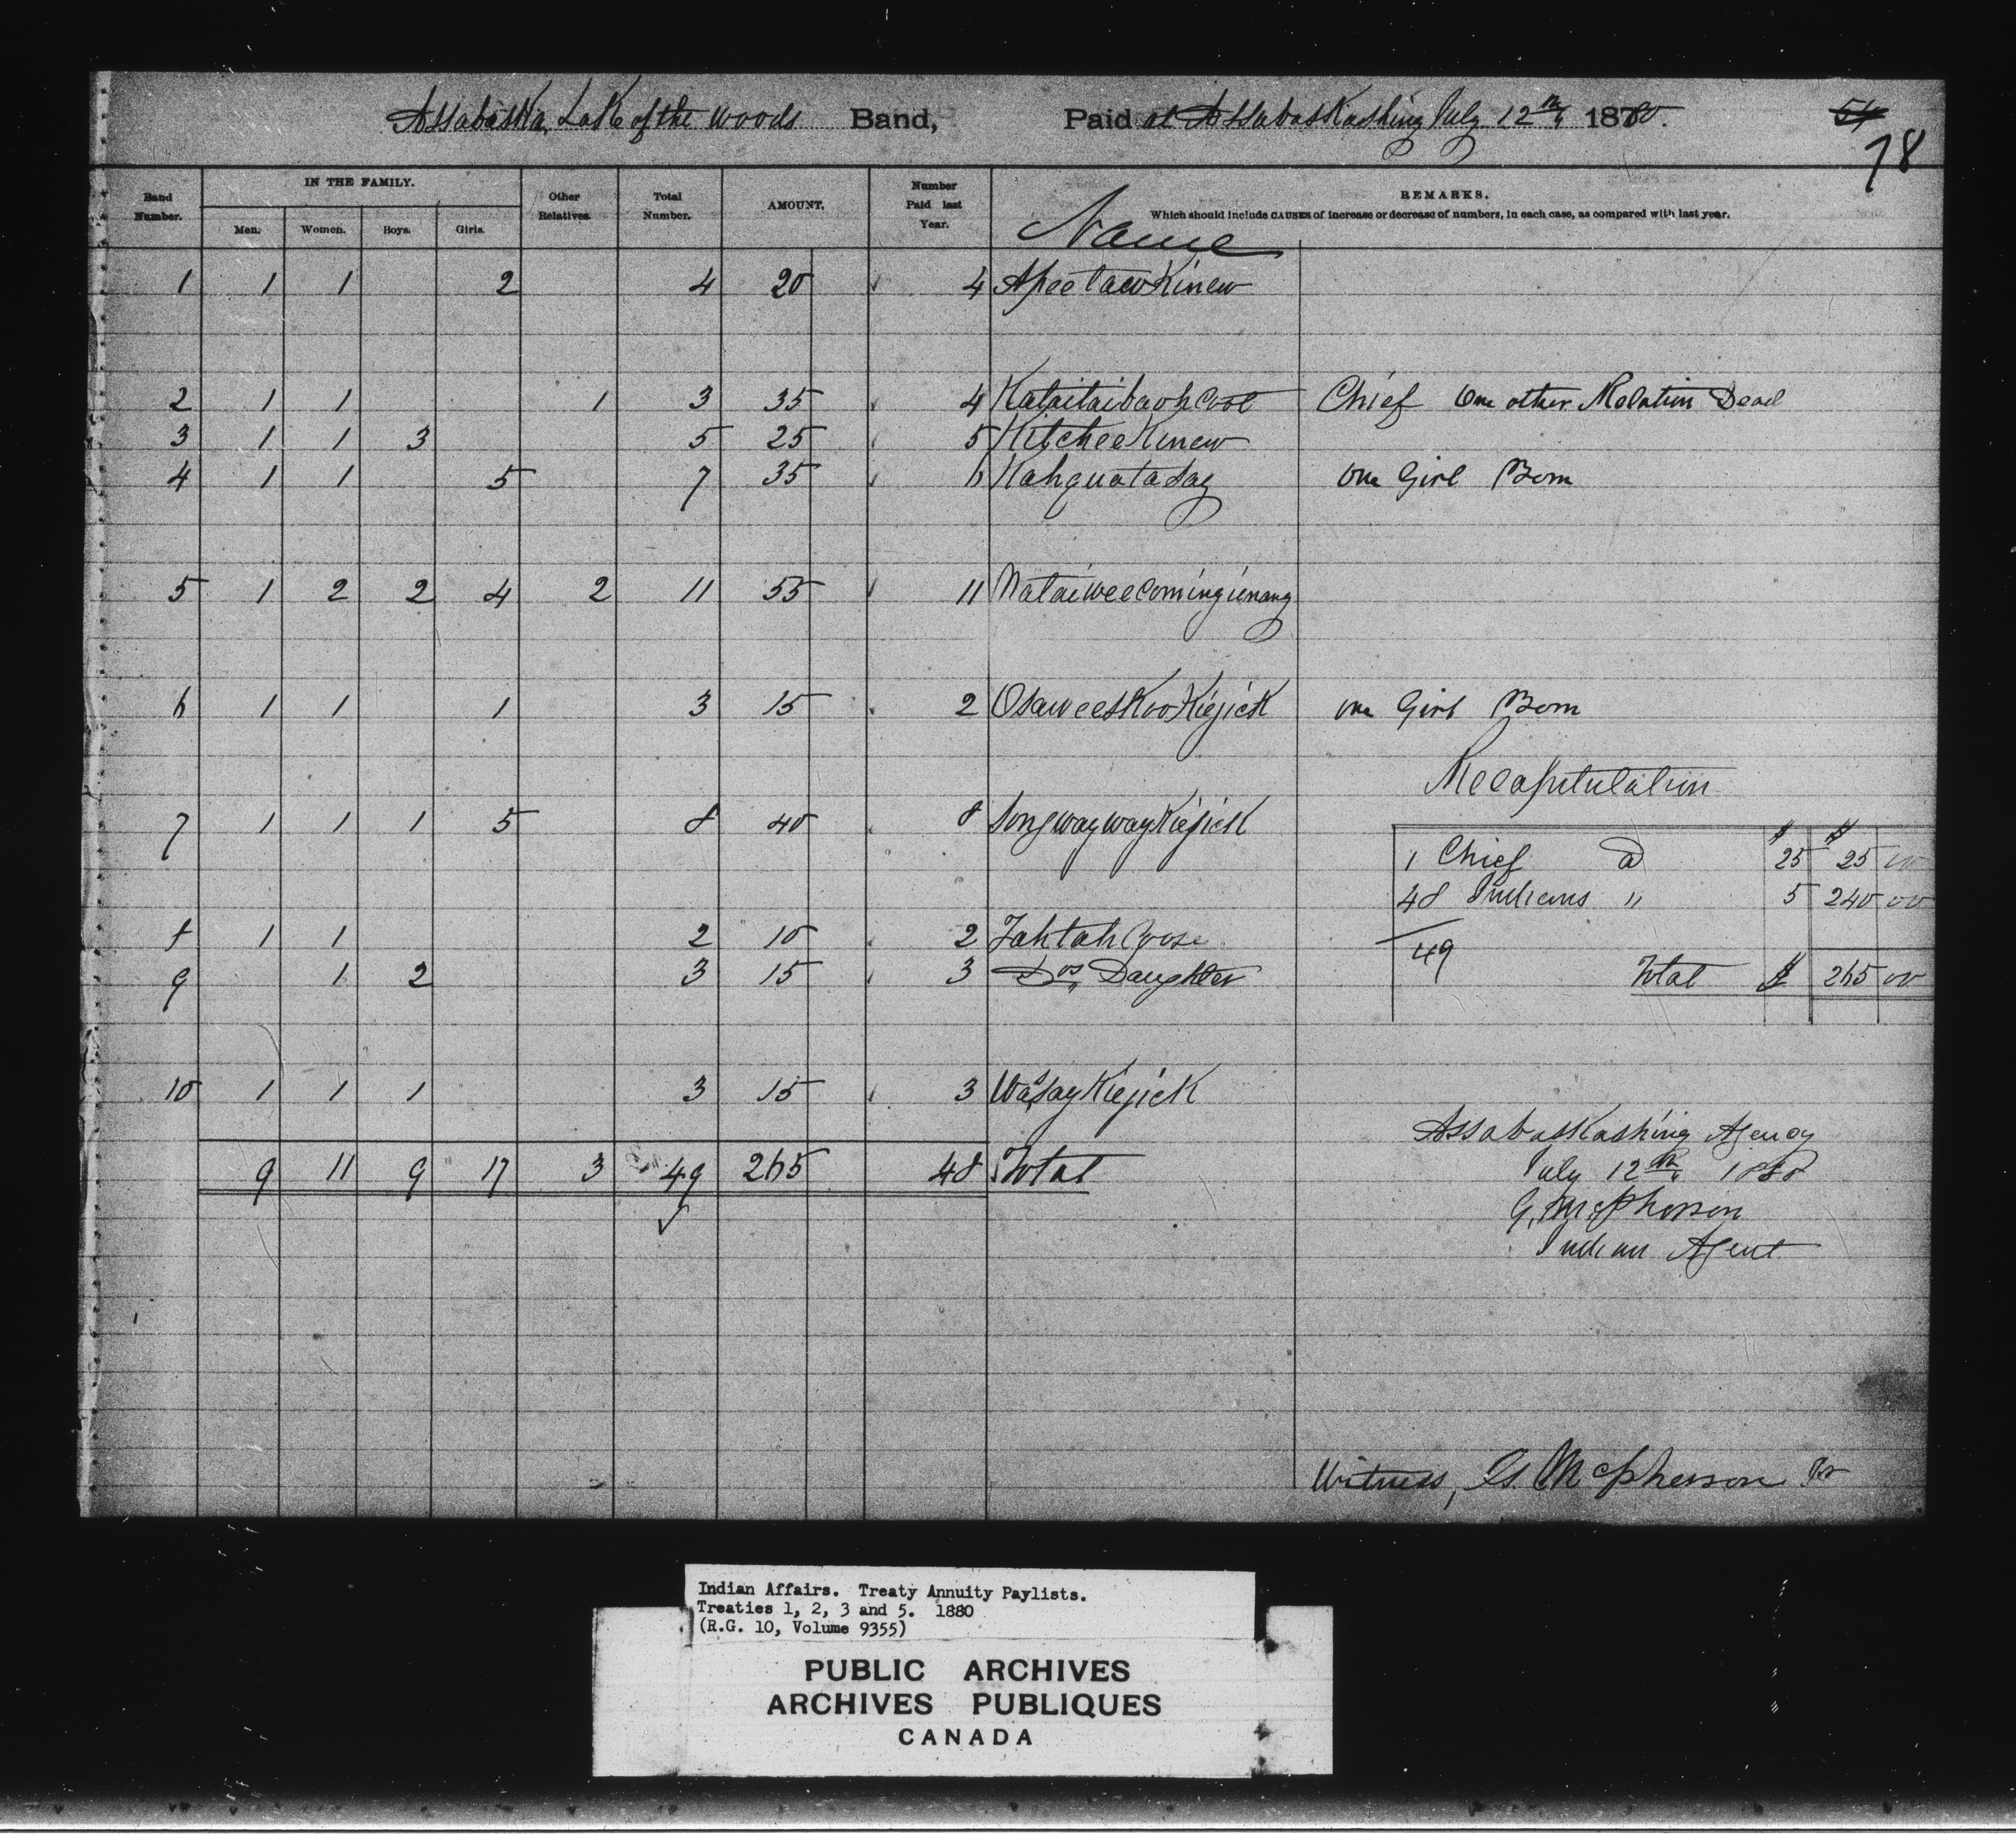 Assabaska, Lake of the woods Band, Paid at Assabaskashing July 12th 1880.
54
78
Band Number. IN THE FAMILY. Men. Women. Boys. Girls. Other Relatives. Total Number. AMOUNT. Number Paid last Year. Name REMARKS.
Which should include CAUSES of increase or decrease of numbers, in each case, as compared with last year.
1 1 1 2 4 20 4 ApeetawKinew
2 1 1 1 3 35 4 Chief One other Relation Dead
3 1 1 3 5 25 5 KitcheeKinew
4 1 1 5 7 35 6 Kahguatasay one Girl Born
5 1 2 2 4 2 11 55 11 Nataiweecomingienang
6 1 1 1 3 15 2 OsaweeskooKiejick one Girl Born
Recapitulation
7 1 1 1 5 8 40 8 SongwaywayKiejick
$ $
1 Chief @ 25 25 00
48 Indians " 5 240 00
8 1 1 2 10 2 TahtahGoose
49
9 1 2 3 15 3 Dos. Daughter
Total $ 265 00
10 1 1 1 3 15 3 WasayKiejick
9 11 9 17 3 49 265 48 Total
Assabaskashing Agency
July 12th 1880
G. McPherson
Indian Agent
Witness, G. McPherson Jr
Indian Affairs. Treaty Annuity Paylists.
Treaties 1, 2, 3 and 5. 1880
(R.G. 10, Volume 9355)
PUBLIC ARCHIVES
ARCHIVES PUBLIQUES
CANADA